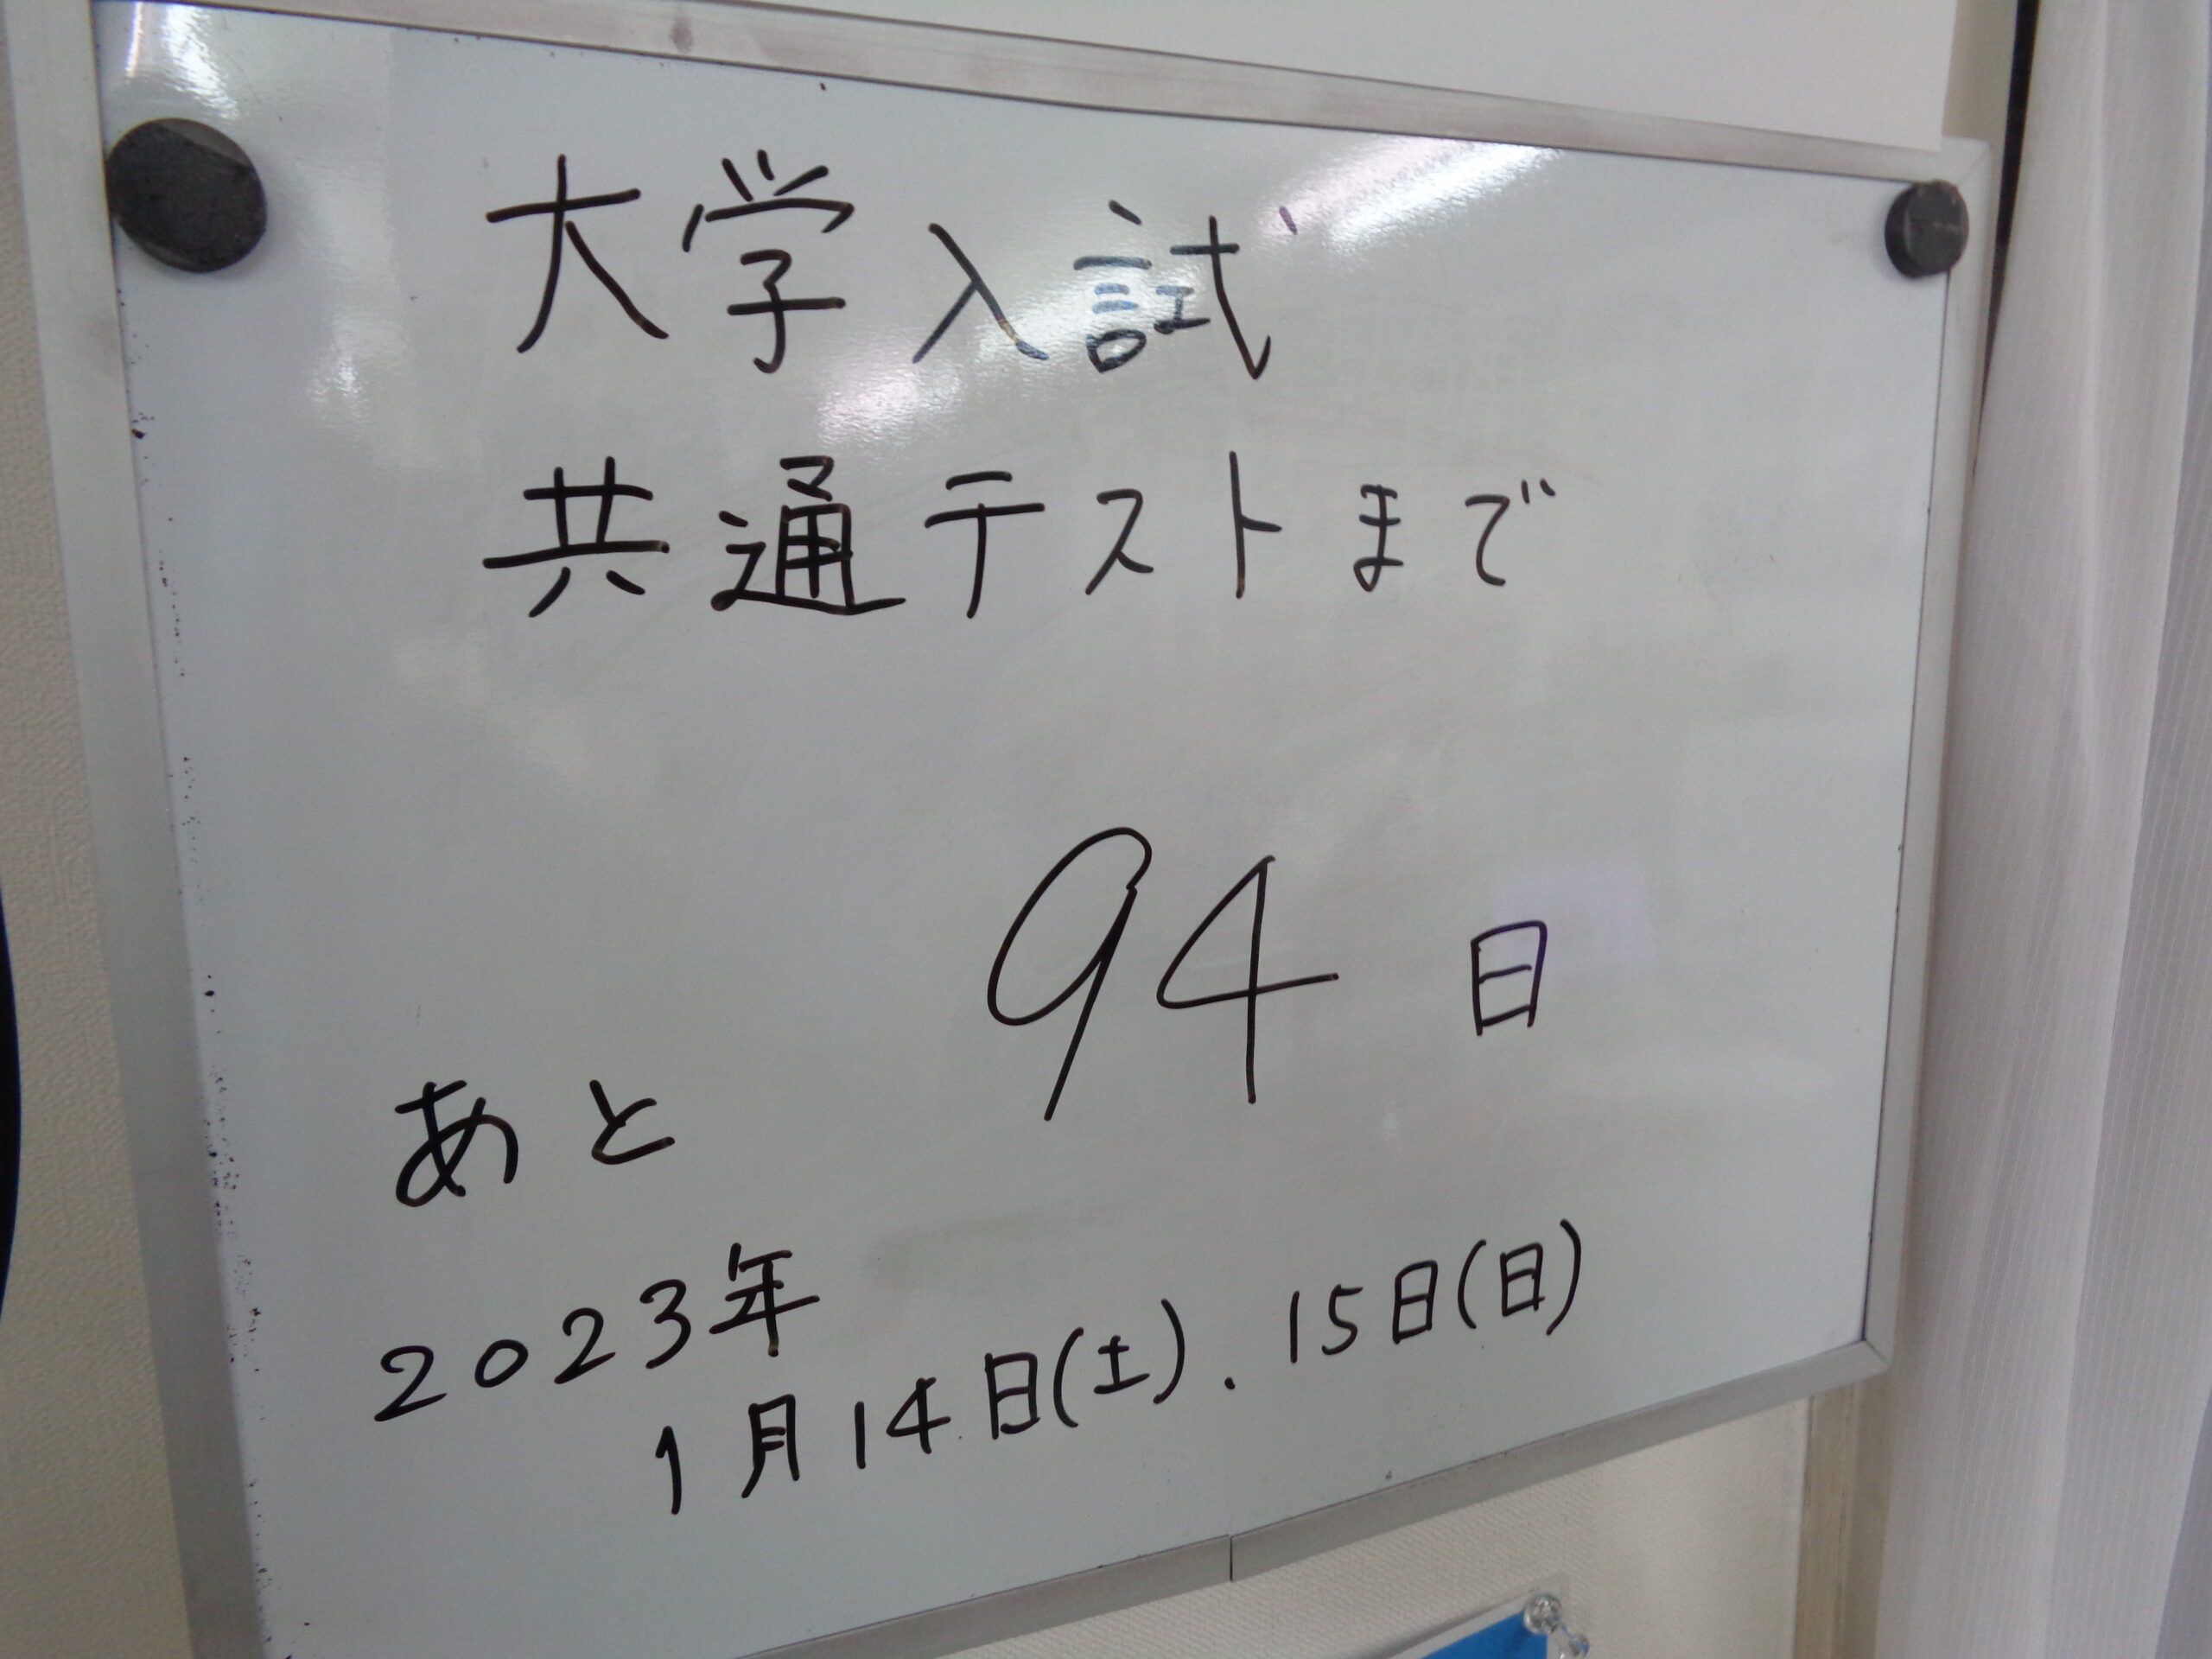 大学入試
共通テストまで
あと 94 日
2023年
1月14日(土).15日(日)